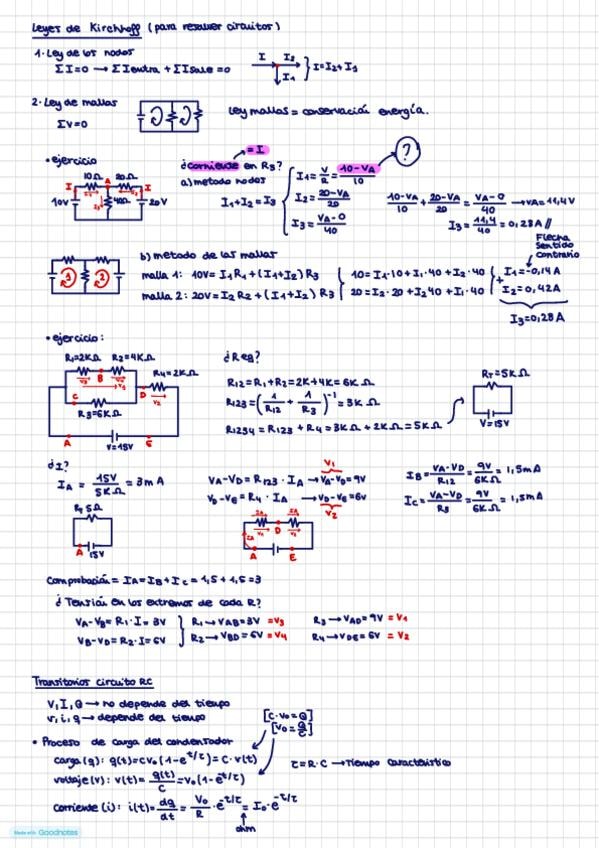 Leyes de Kirchhoff (para resolver circuitos)
1. Ley de los nodos
ΣI=0 → ΣIentra + ΣIsale = 0
I I2 I1 } I=I2+I1
2. Ley de mallas
ΣV=0
Ley mallas = conservación energía.
• ejercicio
10Ω 20Ω
I A I
10V 40Ω 20V
¿corriente en R3? = I
a) metodo nodos
I1+I2=I3
I1 = V/R = 10-VA/10 ?
I2 = 20-VA/20
I3 = VA-0/40
10-VA/10 + 20-VA/20 = VA-0/40 → VA=11,4V
I3 = 11,4/40 = 0,28A //
b) metodo de las mallas
malla 1: 10V= I1R1+(I1+I2)R3
malla 2: 20V=I2R2+(I1+I2)R3
10=I1·10+I1·40+I2·40
20=I2·20+I2 40+I1·40
+ I1=-0,14A
I2=0,42A
Flecha sentido contrario
I3=0,28A
• ejercicio:
R1=2KΩ R2=4KΩ
R4=2KΩ
B
D
C
R3=6KΩ
A E
V=15V
¿Req?
R12=R1+R2=2K+4K=6KΩ
R123=(1/R12 + 1/R3)^-1 = 3KΩ
R1234=R123+R4=3KΩ+2KΩ=5KΩ
RT=5KΩ
V=15V
¿I?
IA = 15V/5KΩ = 3mA
VA-VD=R123·IA → VA-VD=9V V1
VD-VE=R4·IA → VD-VE=6V V2
IB = VA-VD/R12 = 9V/6KΩ = 1,5mA
IC = VA-VD/R3 = 9V/6KΩ = 1,5mA
5Ω
A 15V
D
A E
Comprobación = IA=IB+IC=1,5+1,5=3
¿Tensión en los extremos de cada R?
VA-VB=R1·I=3V
VB-VD=R2·I=6V
R1→VAB=3V =V3
R2→VBD=6V =V4
R3→VAD=9V =V1
R4→VDE=6V =V2
Transitorios circuito RC
V,I,Q → no depende del tiempo
v,i,q → depende del tiempo
• Proceso de carga del condensador
[C·V0=Q]
[V0=Q/C]
carga(q): q(t)=CV0(1-e^-t/τ)=C·v(t)
voltaje(v): v(t)= q(t)/C =V0(1-e^-t/τ)
τ=R·C → Tiempo característico
corriente(i): i(t)= dq/dt = V0/R · e^-t/τ = I0·e^-t/τ
ohm
Made with Goodnotes